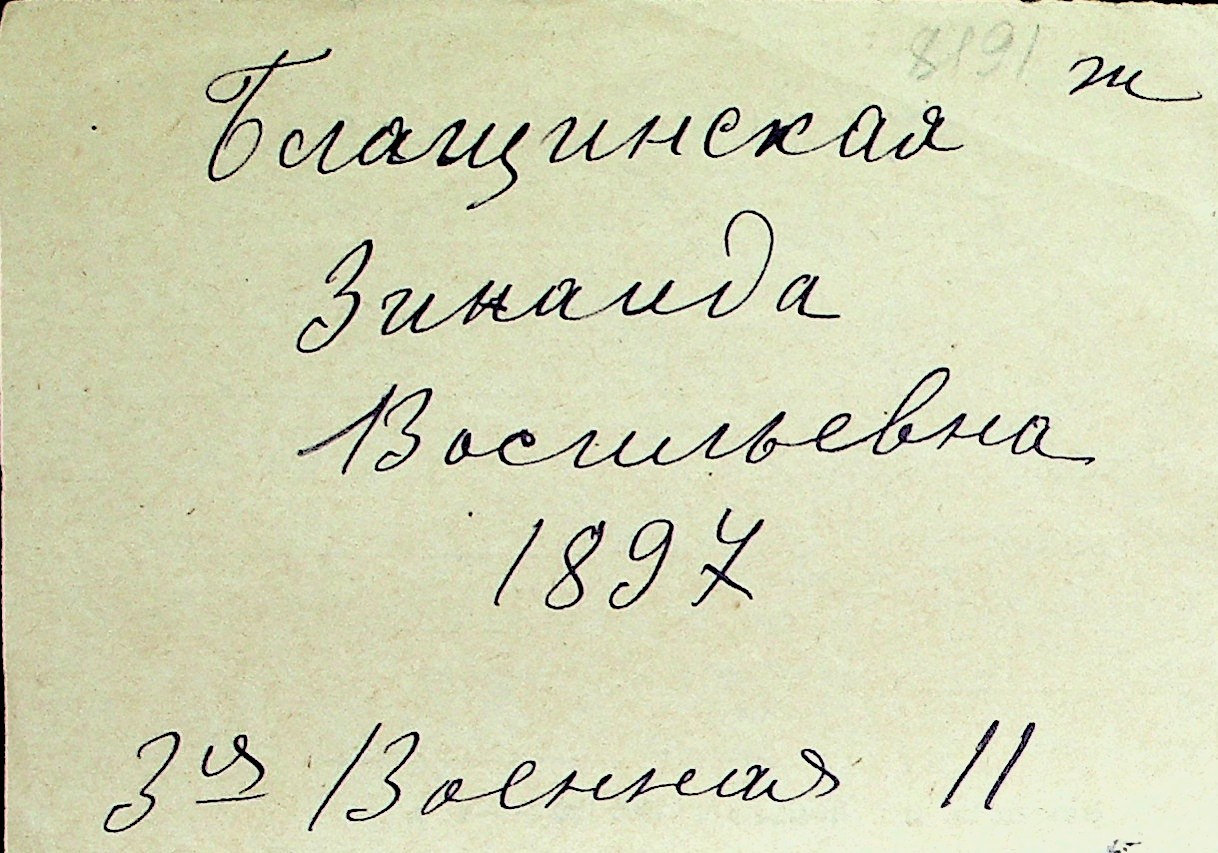 8191 ж
Блащинская
Зинаида
Васильевна
1897
3ья Военная 11